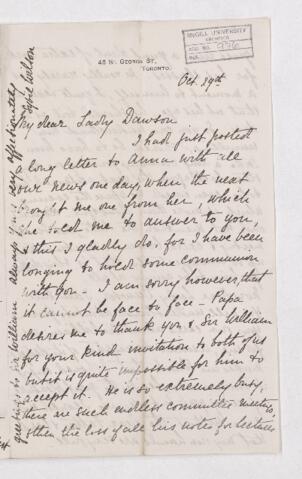 McGILL UNIVERSITY
ARCHIVES
ACC. NO. 976
REF.
45 ST. GEORGE ST.
TORONTO.
Oct 29th
My dear Lady Dawson
I had just posted
a long letter to Anna with all
our news one day, when the next
brought me one from her, which
she told me to answer to you,
& this I gladly do, for I have been
longing to hold some communion
with you - I am sorry however, that
it cannot be face to face - Papa
desires me to thank you & Sir William
for your kind invitation to both of us
but it is quite impossible for him to
accept it. He is so extremely busy,
there are such endless committee meetings,
& then the loss of all his notes for lectures
greetings to Sir William always yours very affectionately
Sybil Wilson